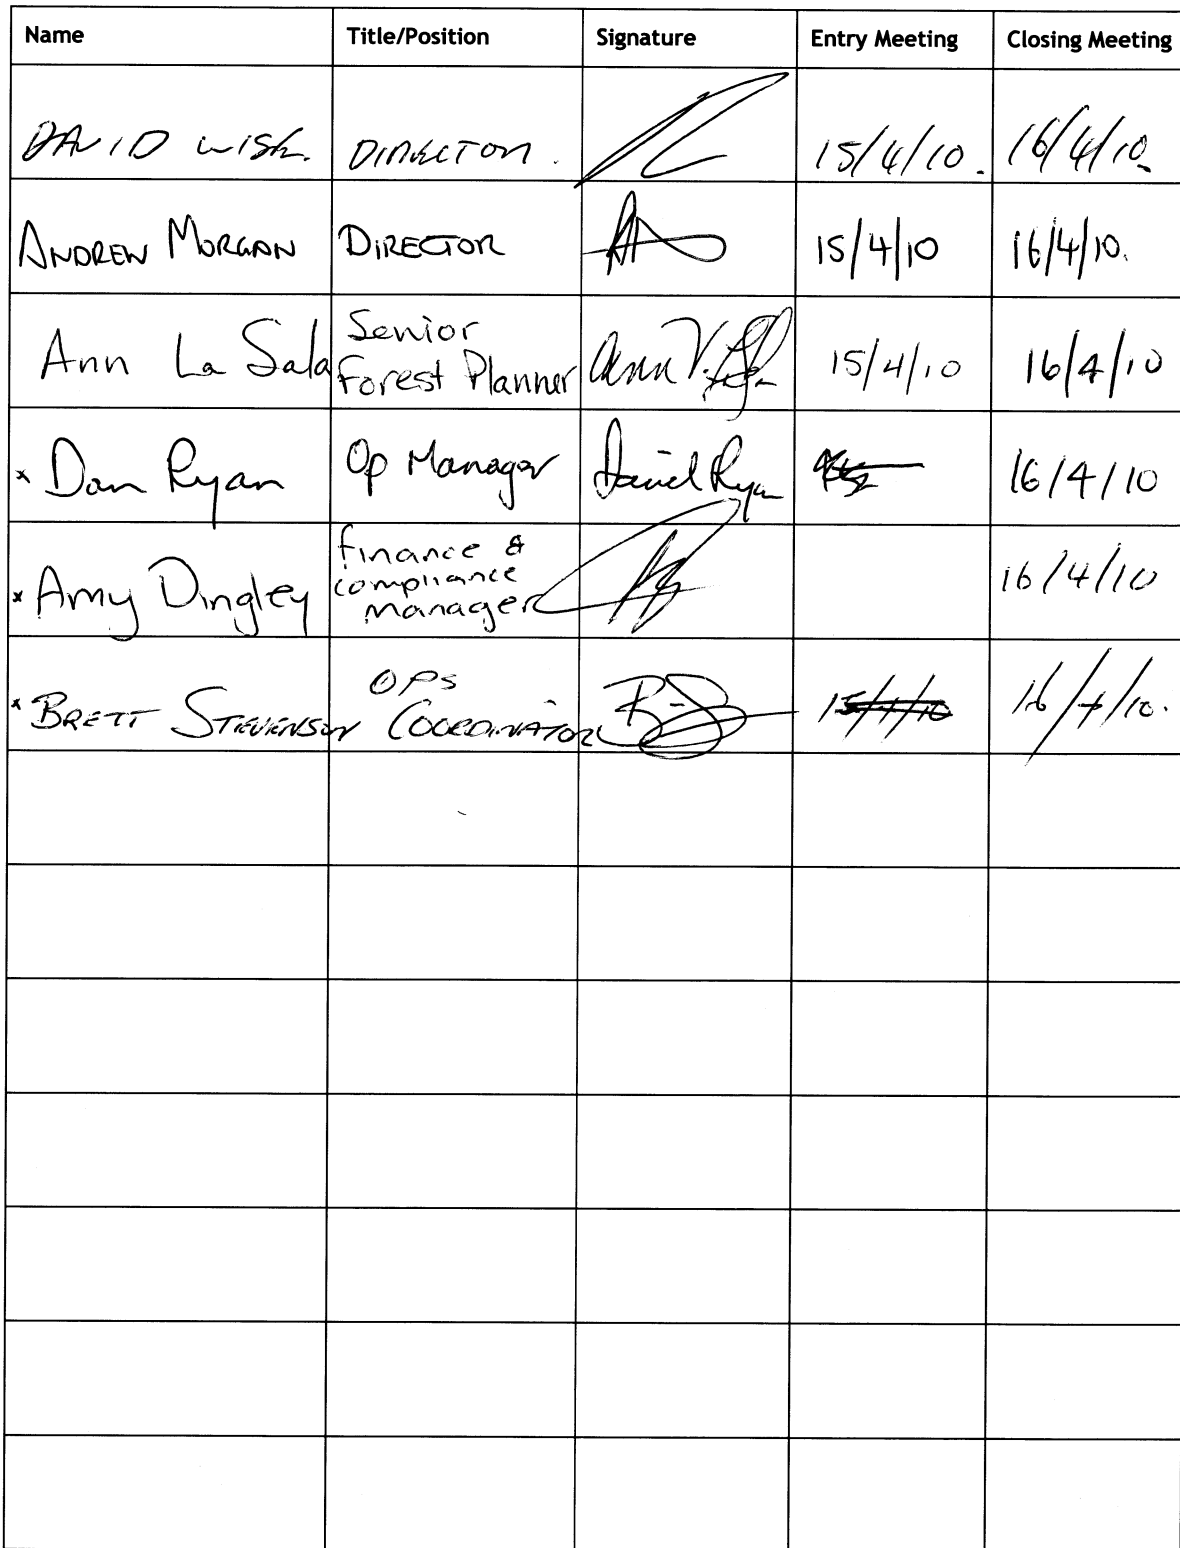 Name Title/Position Signature Entry Meeting Closing Meeting
DAVID WISE. DIRECTOR. 15/4/10. 16/4/10.
ANDREW MORGAN DIRECTOR 15/4/10 16/4/10.
Ann La Sala Senior
Forest Planner Ann V. 15/4/10 16/4/10
x Dan Ryan Op Manager Daniel Ryan 16/4/10
x Amy Dingley finance &
compliance
manager 16/4/10
x BRETT STEVENSON OPS
COORDINATOR 15/4/10 16/4/10.